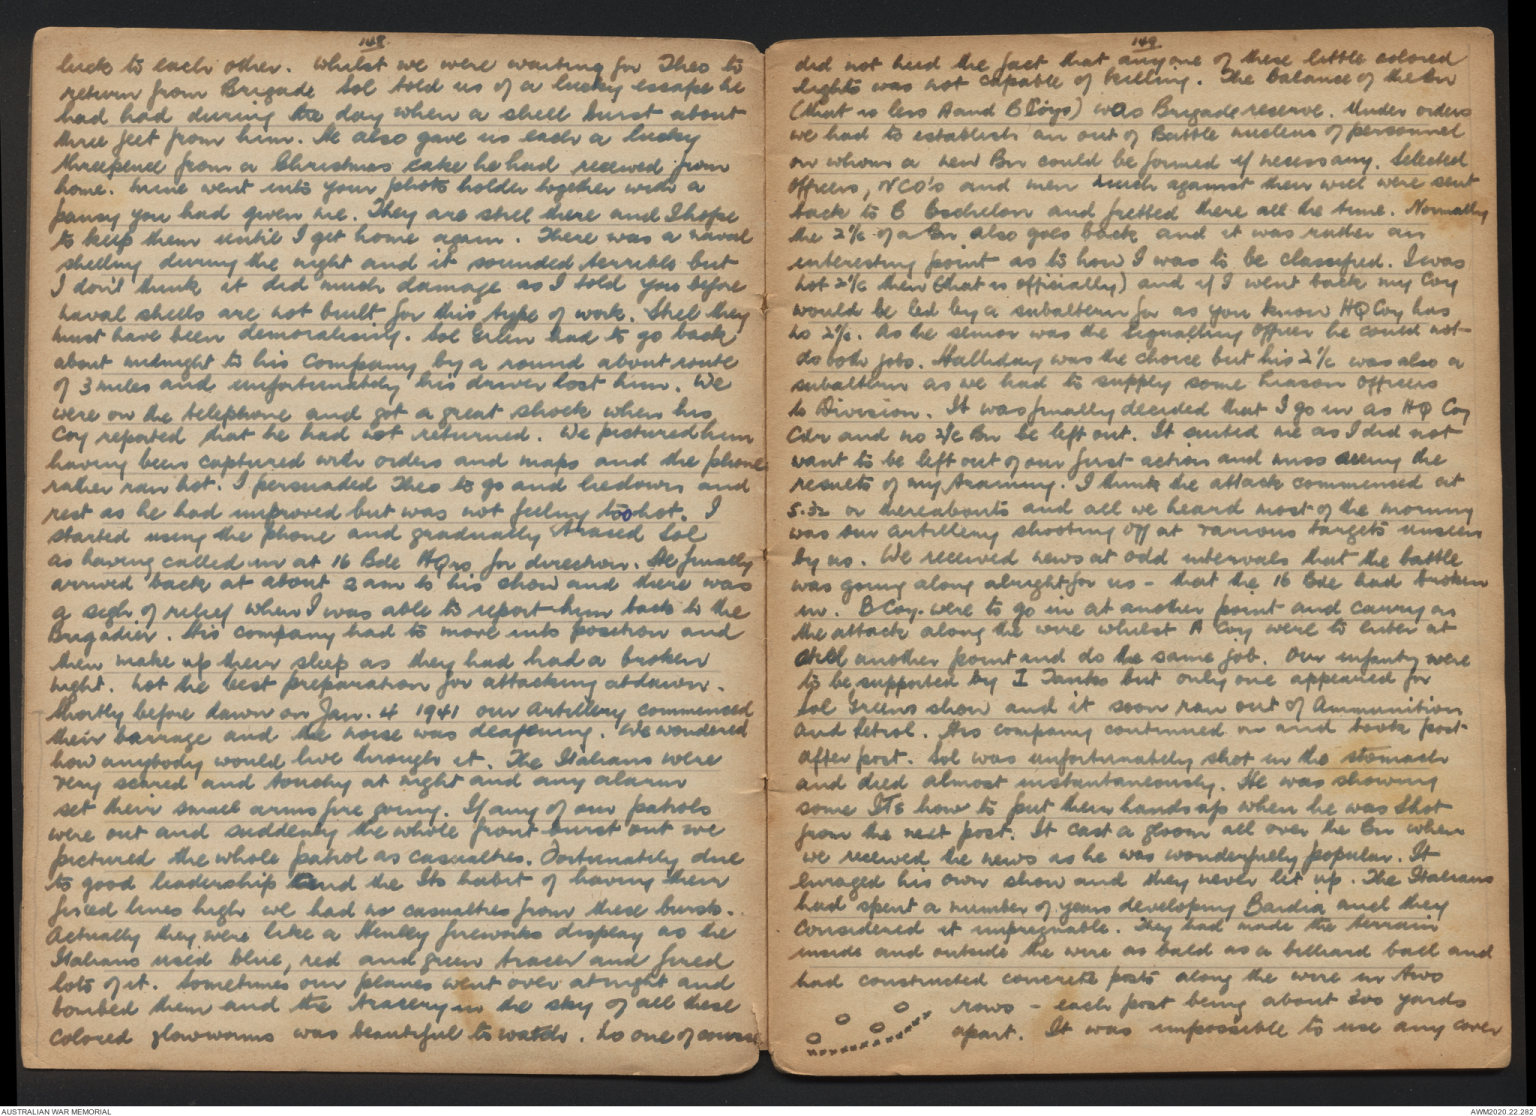 148
luck to each other. Whilst we were waiting for Theo to
return from Brigade Sol told us of a lucky escape he
had had during the day when a shell burst about
three feet from him. He also gave us each a lucky
threepence from a Christmas cake he had received from
home. Mine went into your photo holder together with a
pansy you had given me. They are still there and I hope
to keep them until I get home again. There was a naval
shelling during the night and it sounded terrible but
I don't think it did much damage as I told you before
naval shells are not built for this type of work. Still they
must have been demoralising. Sol Green had to go back
about midnight to his Company by a round about route
of 3 miles and unfortunately his driver lost him. We
were on the telephone and got a great shock when his
Coy reported that he had not returned. We pictured him
having been captured with orders and maps and the phone
rather ran hot. I persuaded Theo to go and lie down and
rest as he had improved but was not feeling too hot. I
started using the phone and gradually traced Sol
as having called in at 16 Bde HQrs for direction. He finally
arrived back at about 2 am to his show and there was
a sigh of relief when I was able to report him back to the
Brigadier. His company had to move into position and
then make up their sleep as they had had a broken
night. Not the best preparation for attacking at dawn.
Shortly before dawn on Jan. 4 1941 our artillery commenced
their barrage and the noise was deafening. We wondered
how anybody would live through it. The Italians were
very scared and touchy at night and any alarm
set their small arms fire going. If any of our patrols
were out and suddenly the whole front burst out we
pictured the whole patrol as casualties. Fortunately due
to good leadership and the Its habit of having their
fixed lines high we had no casualties from these bursts.
Actually they were like a Henley fireworks display as the
Italians used blue, red and green tracer and fired
lots of it. Sometimes our planes went over at night and
bombed them and the tracery in the sky of all these
colored glowworms was beautiful to watch. So one of course
149
did not heed the fact that anyone of these little colored
lights was not capable of killing. The balance of the Bn
(that is less A and B Coys) was Brigade reserve. Under orders
we had to establish an out of Battle nucleus of personnel
on whom a new Bn could be formed if necessary. Selected
Officers, NCO's and men much against their will were sent
back to B Eschelon and fretted there all the time. Normally
the 2i/c of a Bn also goes back and it was rather an
interesting point as to how I was to be classified. I was
not 2i/c then (that is officially) and if I went back my Coy
would be led by a subaltern for as you know HQ Coy has
no 2i/c. As the senior was the Signalling Officer he could not
do both jobs. Halliday was the choice but his 2i/c was also a
subaltern as we had to supply some liason officers
to Division. It was finally decided that I go in as HQ Coy
Cdr and no 2i/c Bn be left out. It suited me as I did not
want to be left out of our first action and miss seeing the
results of my training. I think the attack commenced at
5.32 or thereabouts and all we heard most of the morning
was our artillery shooting off at various targets unseen
by us. We received news at odd intervals that the battle
was going along alright for us - that the 16 Bde had broken
in. B Coy. were to go in at another point and carry on
the attack along the wire whilst A Coy were to enter at
still another point and do the same job. Our infantry were
to be supported by I Tanks but only one appeared for
Sol Greens show and it soon ran out of Ammunition
and Petrol. His company continued on and took post
after post. Sol was unfortunately shot in the stomach
and died almost instantaneously. He was showing
some ITs how to put their hands up when he was shot
from the next post. It cast a gloom all over the Bn when
we received the news as he was wonderfully popular. It
enraged his own show and they never let up. The Italians
had spent a number of years developing Bardia and they
considered it impregnable. They had made the terrain
inside and outside the wire as bald as a billiard ball and
had constructed concrete posts along the wire in two
rows - each post being about 300 yards
apart. It was impossible to use any cover
AUSTRALIAN WAR MEMORIAL
AWM2020.22.282